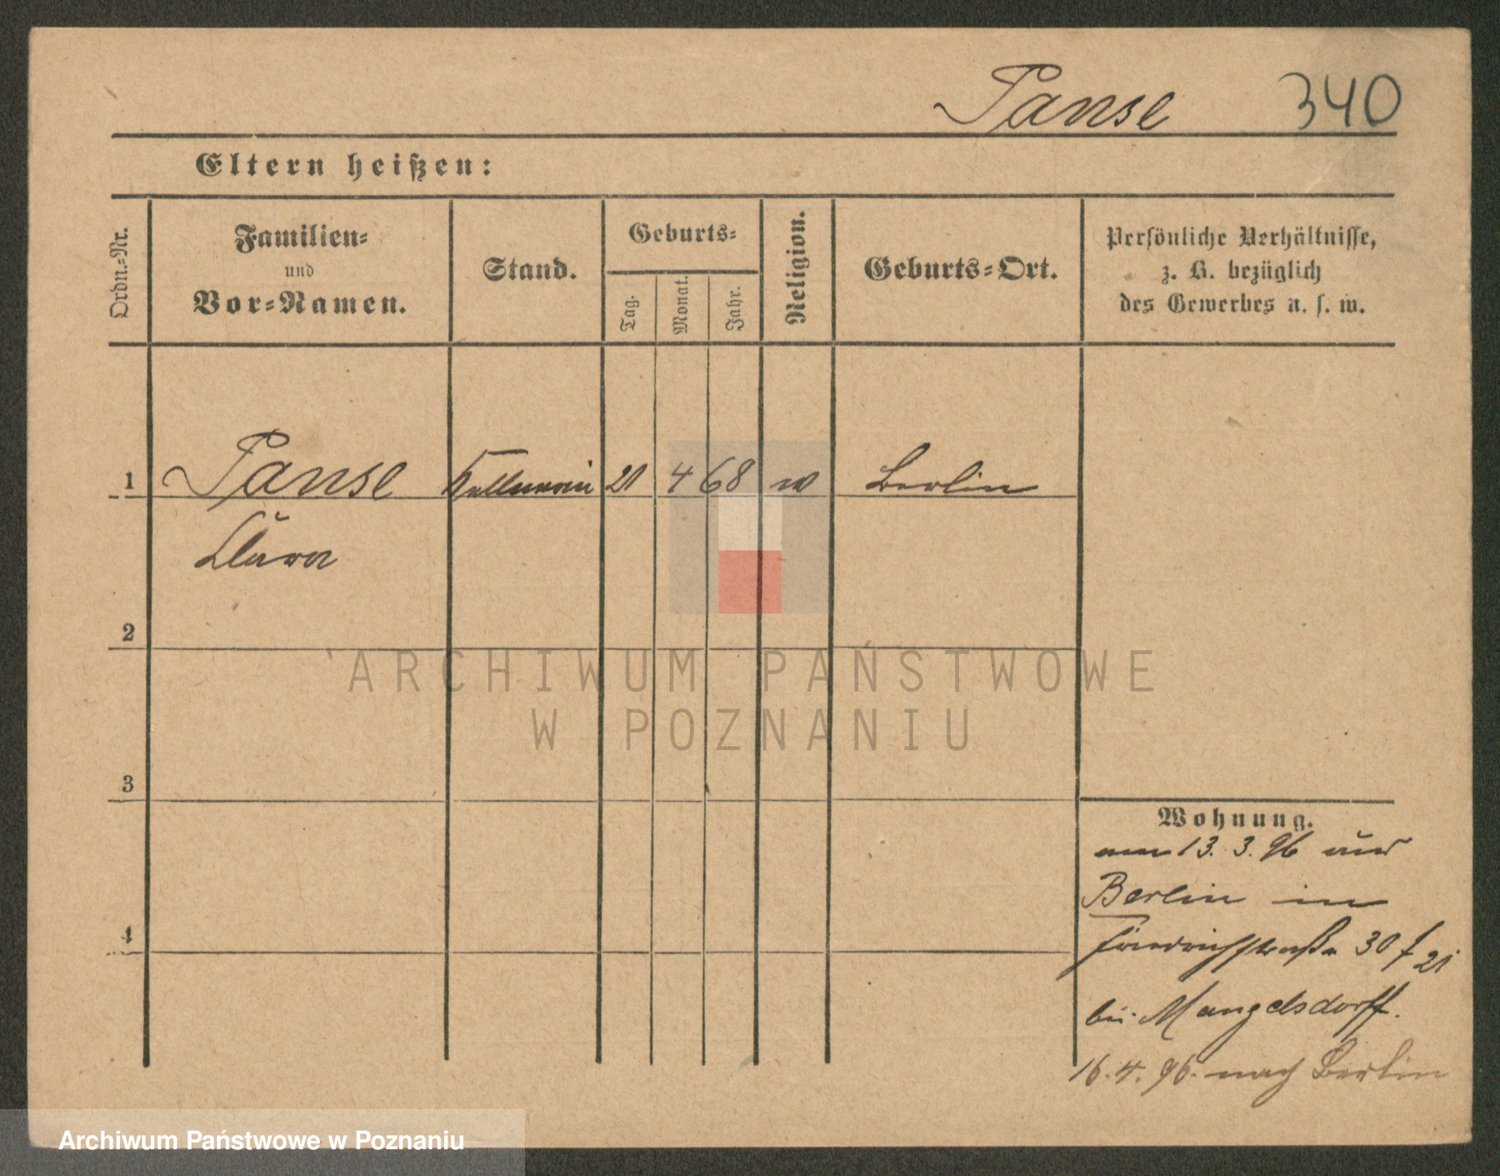 Panse 340
Eltern heißen:
Ordn.-Nr.
Familien-
und
Vor-Namen.
Stand.
Geburts-
Tag.
Monat.
Jahr.
Religion.
Geburts-Ort.
Persönliche Verhältnisse,
z. B. bezüglich
des Gewerbes u. s. w.
1 Panse Kellnerin 21 4 68 Berlin
Clara
2
3
4
Wohnung.
am 13. 3. 96 aus
Berlin in
Friedrichstraße 30
bei Mangelsdorff.
16. 4. 96. nach Berlin
ARCHIWUM PAŃSTWOWE
W POZNANIU
Archiwum Państwowe w Poznaniu